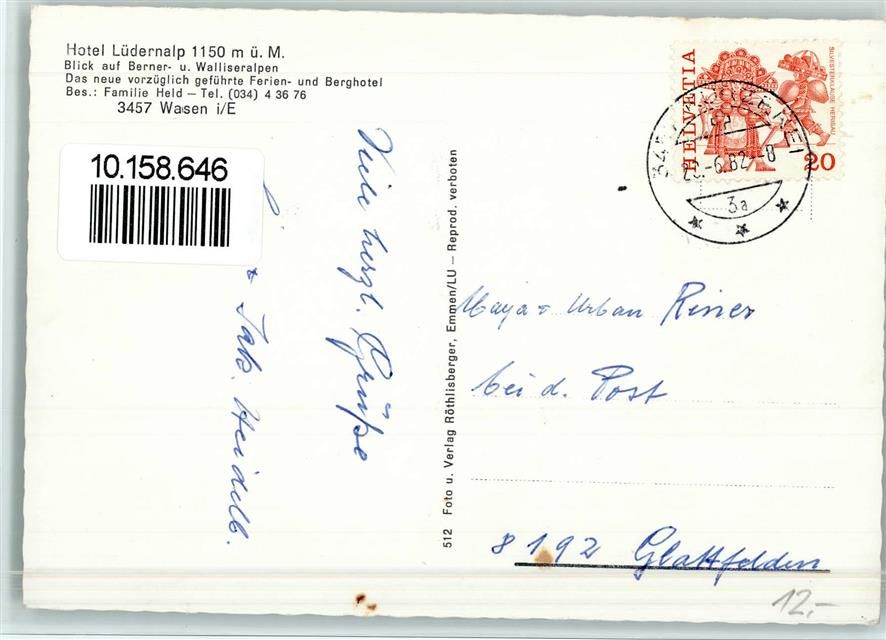 Hotel Lüdernalp 1150 m ü. M.
Blick auf Berner- u. Walliseralpen
Das neue vorzüglich geführte Ferien- und Berghotel
Bes.: Familie Held — Tel. (034) 4 36 76
3457 Wasen i/E
10.158.646
Viele herzl. Grüße
+ Jak. Heidelb.
512 Foto u. Verlag Röthlisberger, Emmen/LU — Reprod. verboten
HELVETIA
SILVESTERKLÄUSE HERISAU
20
-6.82-8
3a
Maya + Urban Riner
bei d. Post
8192 Glattfelden
12.-